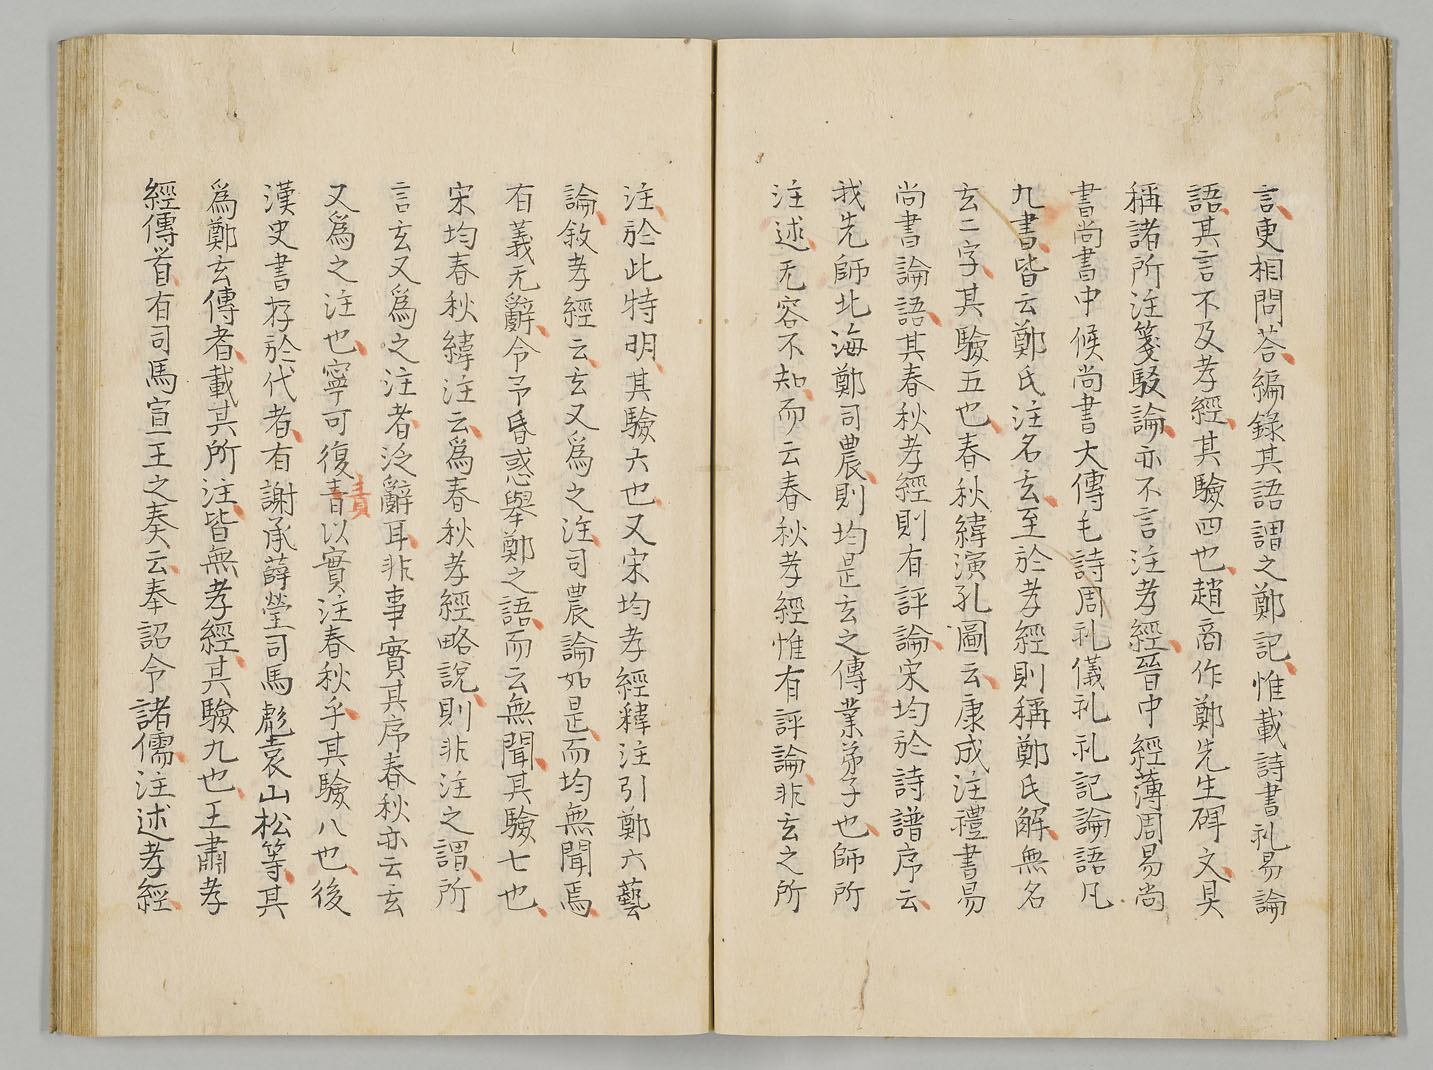 言更相問荅編錄其語謂之鄭記惟載詩書礼易論
語其言不及孝經其驗四也趙商作鄭先生碑文具
稱諸所注箋駁論亦不言注孝經晉中經薄周易尚
書尚書中候尚書大傳毛詩周礼儀礼礼記論語凡
九書皆云鄭氏注名玄至於孝經則稱鄭氏解無名
玄二字其驗五也春秋緯演孔圖云康成注禮書易
尚書論語其春秋孝經則有評論宋均於詩譜序云
我先師北海鄭司農則均是玄之傳業弟子也師所
注述无容不知而云春秋孝經惟有評論非玄之所
注於此特明其驗六也又宋均孝經緯注引鄭六藝
論敘孝經云玄又爲之注司農論如是而均無聞焉
有義无辭令予昏惑舉鄭之語而云無聞其驗七也
宋均春秋緯注云爲春秋孝經略說則非注之謂所
言玄又爲之注者泛辭耳非事實其序春秋亦云玄
又爲之注也寧可復責以實注春秋乎其驗八也後
責
漢史書存於代者有謝承薛瑩司馬彪袁山松等其
爲鄭玄傳者載其所注皆無孝經其驗九也王肅孝
經傳首有司馬宣王之奏云奉詔令諸儒注述孝經